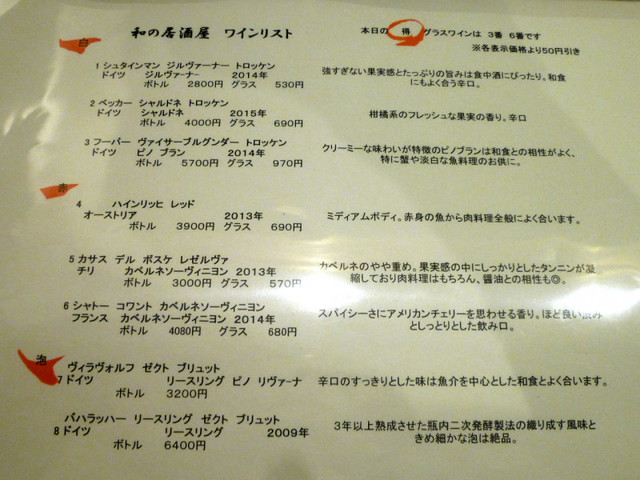 和の居酒屋 ワインリスト
本日の 得 グラスワインは 3番 6番です
※各表示価格より50円引き
白
1 シュタインマン ジルヴァーナー トロッケン
ドイツ ジルヴァーナー 2014年
ボトル 2800円 グラス 530円
強すぎない果実感とたっぷりの旨みは食中酒にぴったり。和食
にもよく合う辛口。
2 ベッカー シャルドネ トロッケン
ドイツ シャルドネ 2015年
ボトル 4000円 グラス 690円
柑橘系のフレッシュな果実の香り。辛口
3 フーバー ヴァイサーブルグンダー トロッケン
ドイツ ピノ ブラン 2014年
ボトル 5700円 グラス 970円
クリーミーな味わいが特徴のピノブランは和食との相性がよく、
特に蟹や淡白な魚料理のお供に。
赤
4 ハインリッヒ レッド
オーストリア 2013年
ボトル 3900円 グラス 690円
ミディアムボディ。赤身の魚から肉料理全般によく合います。
5 カサス デル ボスケ レゼルヴァ
チリ カベルネソーヴィニヨン 2013年
ボトル 3000円 グラス 570円
カベルネのやや重め。果実感の中にしっかりとしたタンニンが凝
縮しており肉料理はもちろん、醤油との相性も◎。
6 シャトー コワント カベルネソーヴィニヨン
フランス カベルネソーヴィニヨン 2014年
ボトル 4080円 グラス 680円
スパイシーさにアメリカンチェリーを思わせる香り。ほど良い渋み
としっとりとした飲み口。
泡
ヴィラヴォルフ ゼクト ブリュット
7 ドイツ リースリング ピノ リヴァーナ
ボトル 3200円
辛口のすっきりとした味は魚介を中心とした和食とよく合います。
バハラッハー リースリング ゼクト ブリュット
8 ドイツ リースリング 2009年
ボトル 6400円
3年以上熟成させた瓶内二次発酵製法の織り成す風味と
きめ細かな泡は絶品。